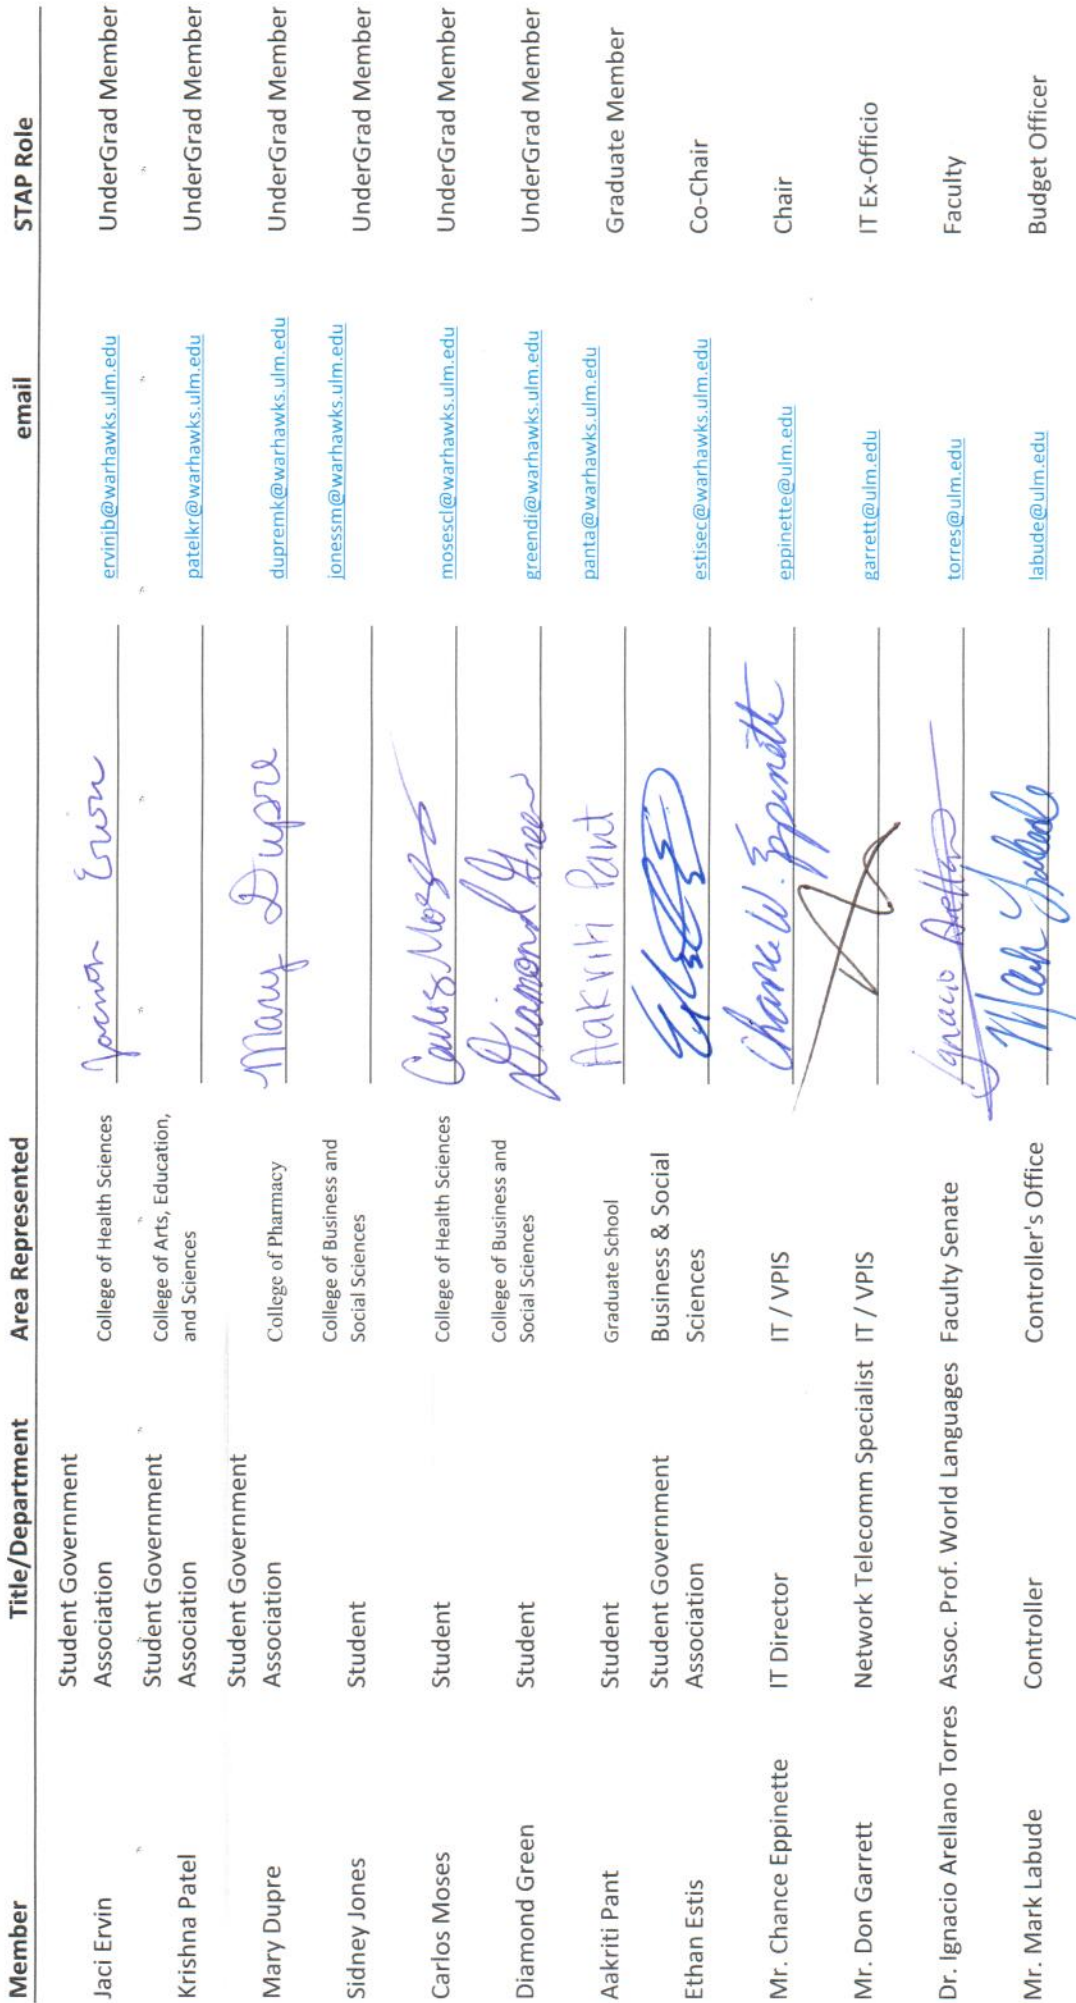 Member Title/Department Area Represented email STAP Role
Student Government
Jaci Ervin Association College of Health Sciences Ervin ervinjb@warhawks.ulm.edu UnderGrad Member
Student Government College of Arts, Education,
Krishna Patel Association and Sciences patelkr@warhawks.ulm.edu UnderGrad Member
Student Government
Mary Dupre Association College of Pharmacy Mary Dupre dupremk@warhawks.ulm.edu UnderGrad Member
College of Business and
Sidney Jones Student Social Sciences jonessm@warhawks.ulm.edu UnderGrad Member
Carlos Moses Student College of Health Sciences Carlos Moses mosescl@warhawks.ulm.edu UnderGrad Member
College of Business and
Diamond Green Student Social Sciences Diamond Green greendi@warhawks.ulm.edu UnderGrad Member
Aakriti Pant Student Graduate School Aakriti Pant panta@warhawks.ulm.edu Graduate Member
Student Government Business & Social
Ethan Estis Association Sciences estisec@warhawks.ulm.edu Co-Chair
Mr. Chance Eppinette IT Director IT / VPIS Chance W. Eppinette eppinette@ulm.edu Chair
Mr. Don Garrett Network Telecomm Specialist IT / VPIS garrett@ulm.edu IT Ex-Officio
Dr. Ignacio Arellano Torres Assoc. Prof. World Languages Faculty Senate Ignacio Arellano torres@ulm.edu Faculty
Mr. Mark Labude Controller Controller's Office Mark Labude labude@ulm.edu Budget Officer